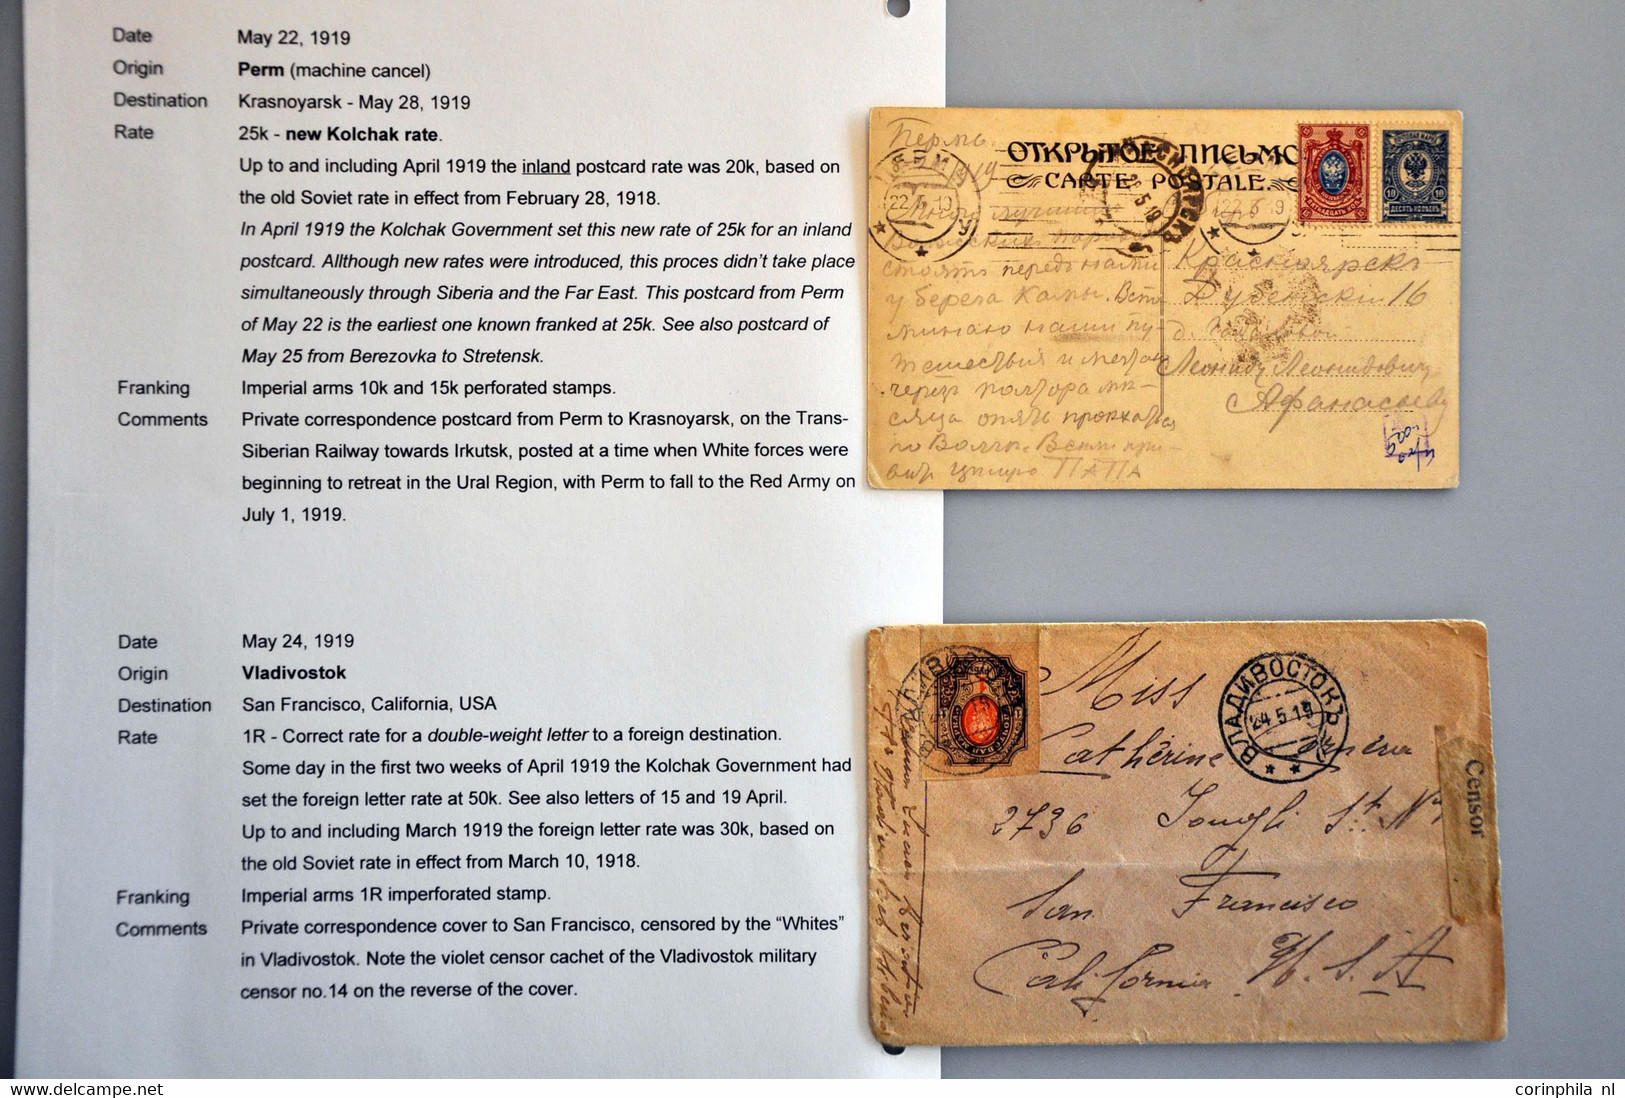 Date May 22, 1919
Origin Perm (machine cancel)
Destination Krasnoyarsk - May 28, 1919
Rate 25k - new Kolchak rate.
Up to and including April 1919 the inland postcard rate was 20k, based on
the old Soviet rate in effect from February 28, 1918.
In April 1919 the Kolchak Government set this new rate of 25k for an inland
postcard. Allthough new rates were introduced, this proces didn't take place
simultaneously through Siberia and the Far East. This postcard from Perm
of May 22 is the earliest one known franked at 25k. See also postcard of
May 25 from Berezovka to Stretensk.
Franking Imperial arms 10k and 15k perforated stamps.
Comments Private correspondence postcard from Perm to Krasnoyarsk, on the Trans-
Siberian Railway towards Irkutsk, posted at a time when White forces were
beginning to retreat in the Ural Region, with Perm to fall to the Red Army on
July 1, 1919.
Date May 24, 1919
Origin Vladivostok
Destination San Francisco, California, USA
Rate 1R - Correct rate for a double-weight letter to a foreign destination.
Some day in the first two weeks of April 1919 the Kolchak Government had
set the foreign letter rate at 50k. See also letters of 15 and 19 April.
Up to and including March 1919 the foreign letter rate was 30k, based on
the old Soviet rate in effect from March 10, 1918.
Franking Imperial arms 1R imperforated stamp.
Comments Private correspondence cover to San Francisco, censored by the “Whites”
in Vladivostok. Note the violet censor cachet of the Vladivostok military
censor no.14 on the reverse of the cover.
Пермь
1919
ОТКРЫТОЕ ПИСЬМО
CARTE POSTALE.
22 5 19
10 10
ДЕСЯТЬ КОПѢЕКЪ
стоятъ передъ нами
у берега Камы.
наши
и
черезъ полтора мѣ-
сяца опять
по Волгѣ.
ПАПА
Красноярскъ
16
Леониду Леонидовичу
Афанасьеву
Miss
Catherine
2736
St.
San Francisco
California U.S.A
ВЛАДИВОСТОКЪ
24 5 19
Censor
corinphila nl